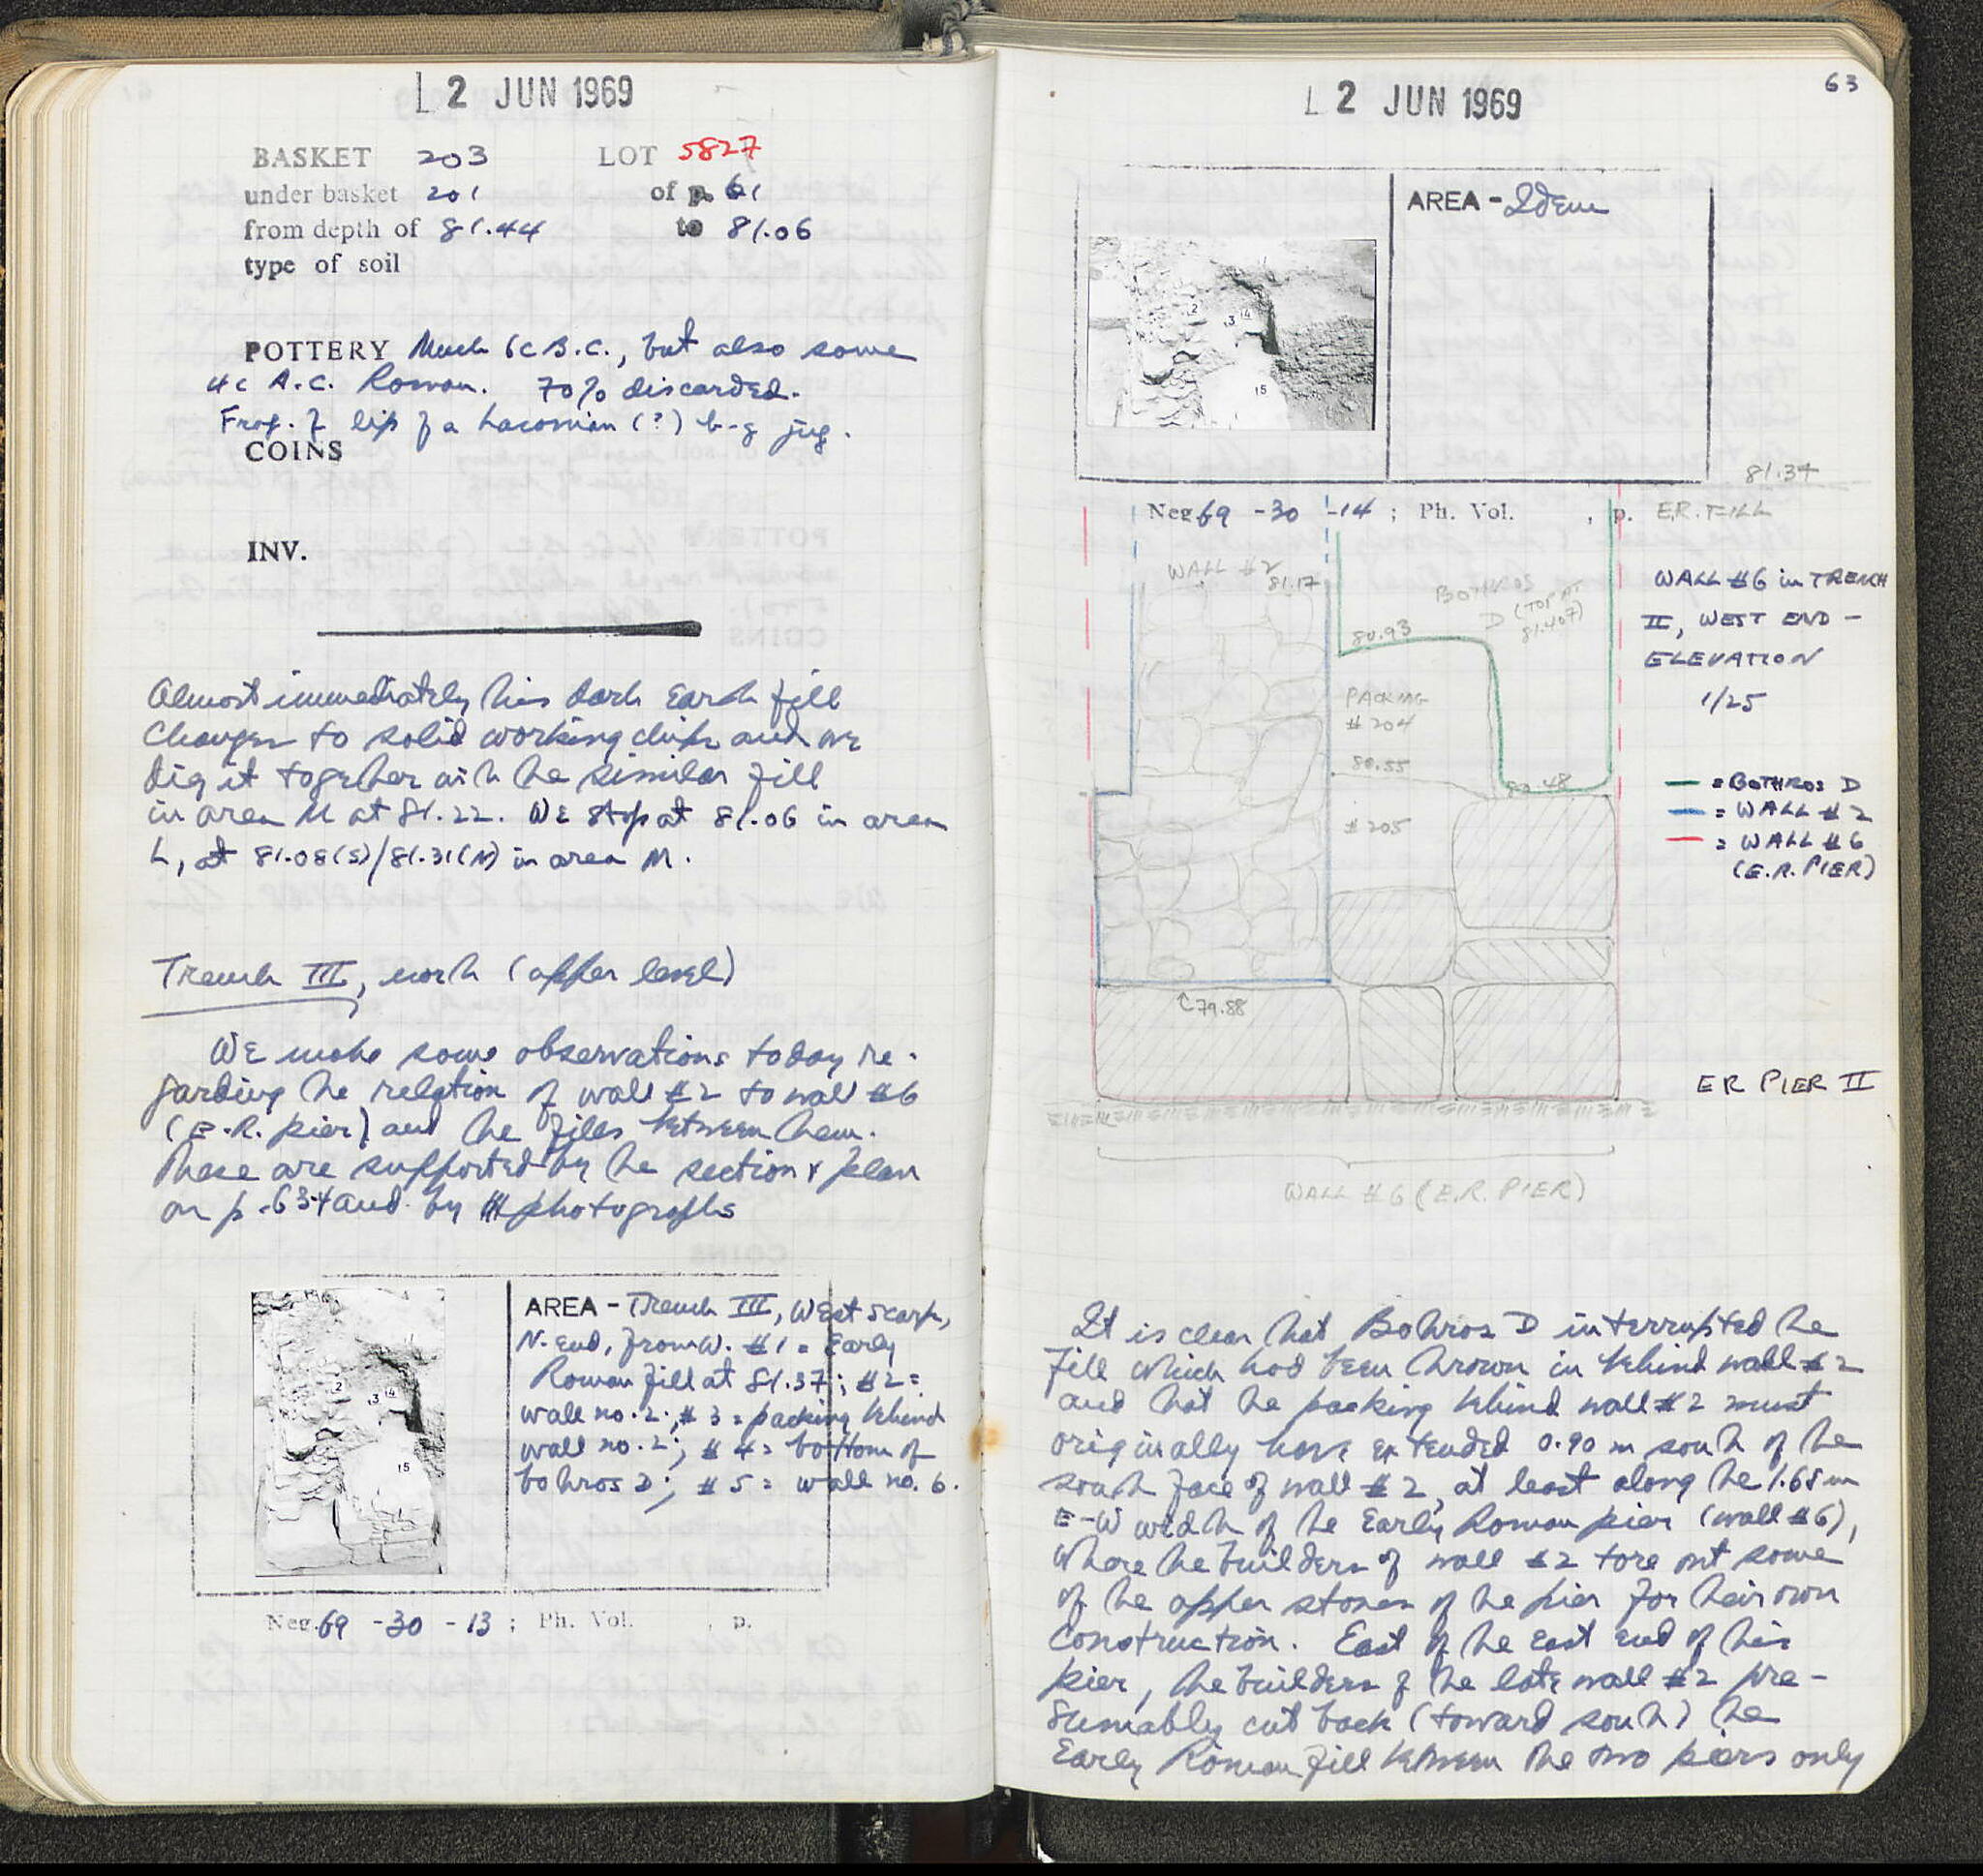 L 2 JUN 1969
BASKET 203 LOT 5827
under basket 201 of p. 61
from depth of 81.44 to 81.06
type of soil
POTTERY Much 6c B.C., but also some
4c A.C. Roman. 70% discarded.
Frag. of lip of a Laconian (?) b-g jug.
COINS
INV.
Almost immediately this dark earth fill
changes to solid working chips and we
dig it together with the similar fill
in area M at 81.22. We stop at 81.06 in area
L, at 81.08(S)/81.31(N) in area M.
Trench III, north (upper level)
We make some observations today re-
garding the relation of wall #2 to wall #6
(E.R. pier) and the fills between them.
These are supported by the section & plan
on p. 63-4 and by photographs
AREA - Trench III, West scarp,
N. End, from W. #1 = Early
Roman fill at 81.37; #2 =
wall no. 2; #3 = packing behind
wall no. 2; #4 = bottom of
bothros D; #5 = wall no. 6.
2
3
4
5
Neg. 69 -30 -13 ; Ph. Vol. , p.
63
L 2 JUN 1969
AREA - Idem
2
3
4
5
81.37
Neg 69 -30 -14 ; Ph. Vol. , p. E.R. FILL
WALL #2
81.17
BOTHROS
D (TOP AT
81.407)
80.93
PACKING
#204
80.55
80.48
#205
↑79.88
WALL #6 in TRENCH
II, WEST END -
ELEVATION
1/25
= BOTHROS D
= WALL #2
= WALL #6
(E.R. PIER)
ER PIER II
WALL #6 (E.R. PIER)
It is clear that Bothros D interrupted the
fill which had been thrown in behind wall #2
and that the packing behind wall #2 must
originally have extended 0.90 m south of the
south face of wall #2, at least along the 1.68 m
E-W width of the Early Roman pier (wall #6),
where the builders of wall #2 tore out some
of the upper stones of the pier for their own
construction. East of the east end of this
pier, the builders of the late wall #2 pre-
sumably cut back (toward south) the
Early Roman fill between the two piers only